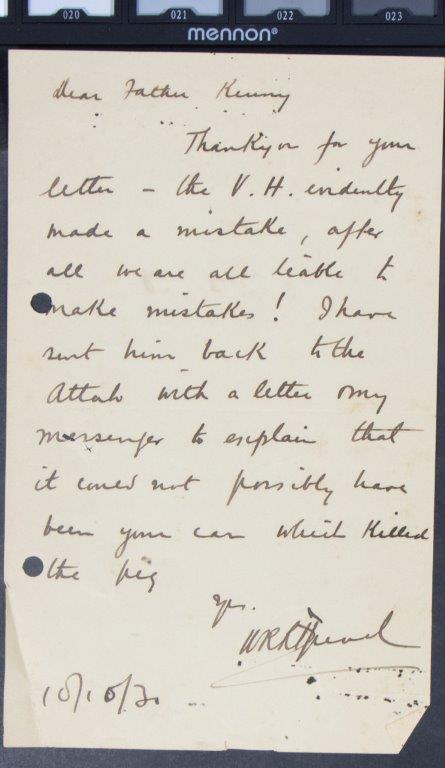 020 021 022 023
mennon®
Dear Father Kenny
Thank you for your
letter – the V. H. evidently
made a mistake, after
all we are all liable to
make mistakes! I have
sent him back to the
Attah with a letter & my
messenger to explain that
it could not possibly have
been your car which killed
the pig
Yrs.
10/10/30